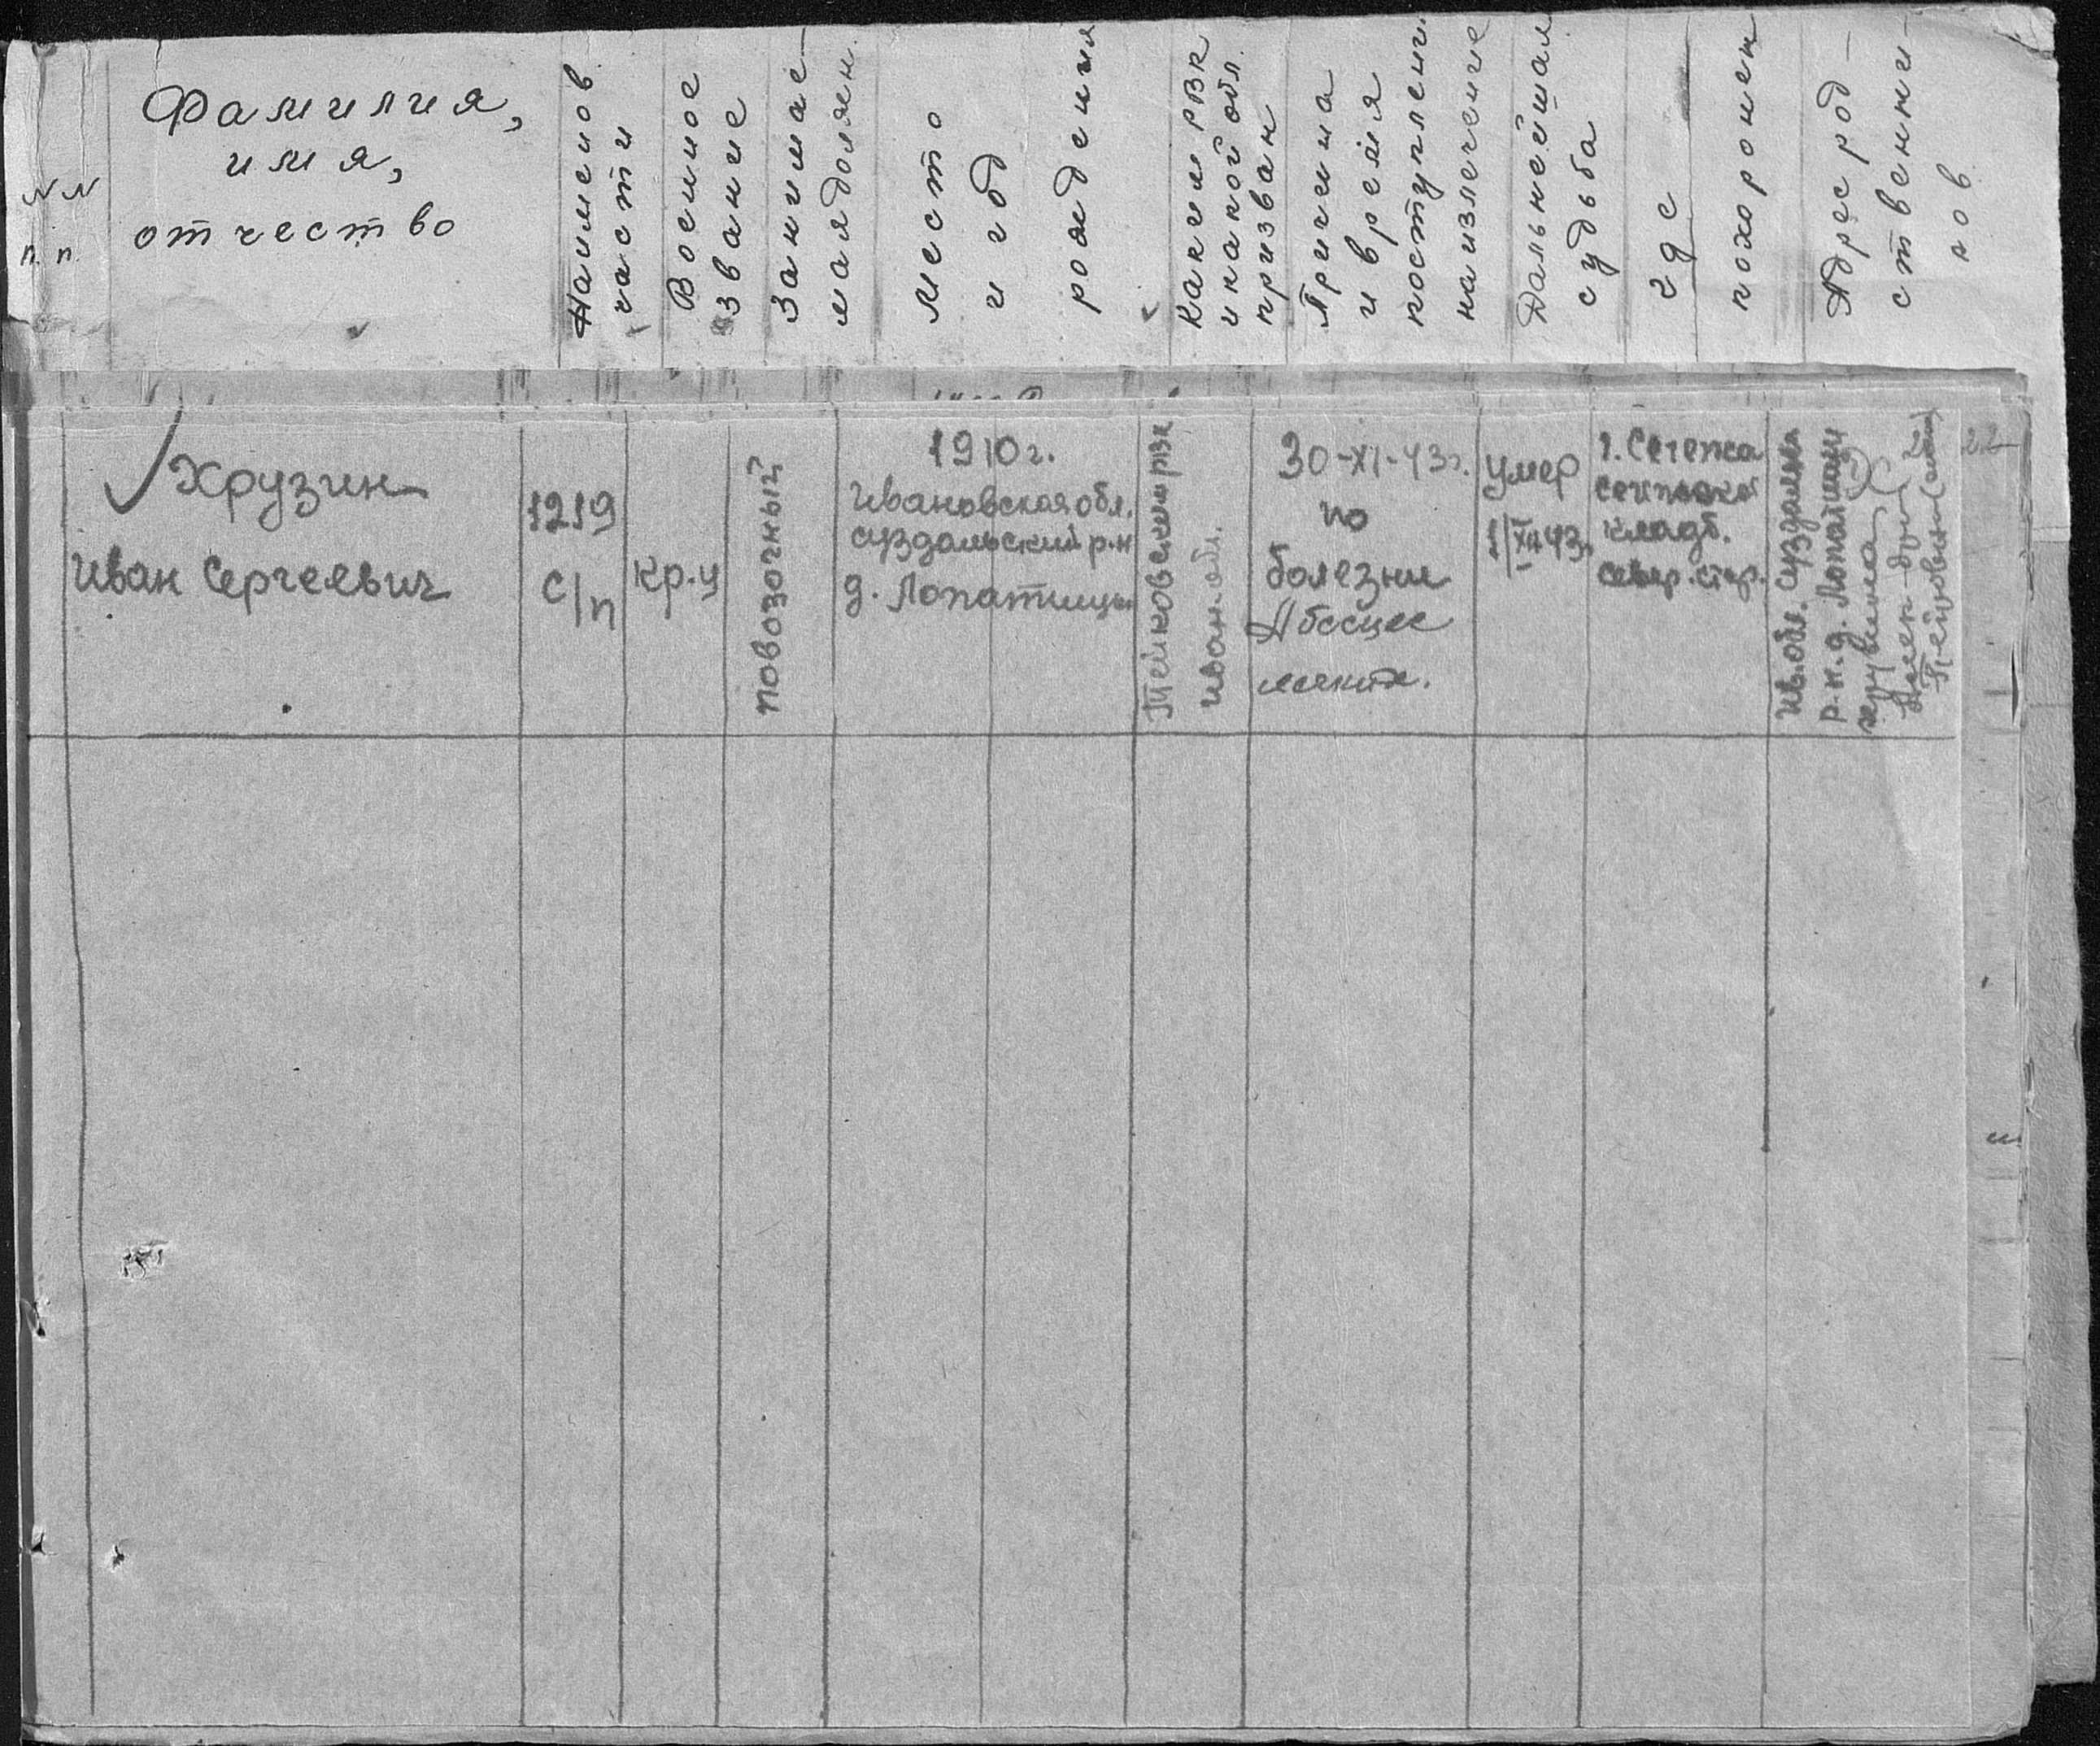 NN
п.п.
Фамилия,
имя,
отчество
Наименов.
части
Военное
звание
Занимае-
мая должен.
Место
и год
рождения
Каким РВК
и какой обл.
призван
Причина
и время
поступлени
на излечение
Дальнейшая
судьба
где
похоронен
Адрес род-
ственни-
ков
Хрузин
Иван Сергеевич
1219
с/п
кр-ц
повозочный
1910 г.
Ивановская обл.
Суздальский р-н
д. Лопатницы
Тейковским РВК
Иван. обл.
30-XI-43 г.
по
болезни
Абсцес
легких.
умер
1/XII 43 г.
г. Сегежа
кладб.
север. стор.
Ив. обл. Суздальск
р-н. д. Лопатницы
22